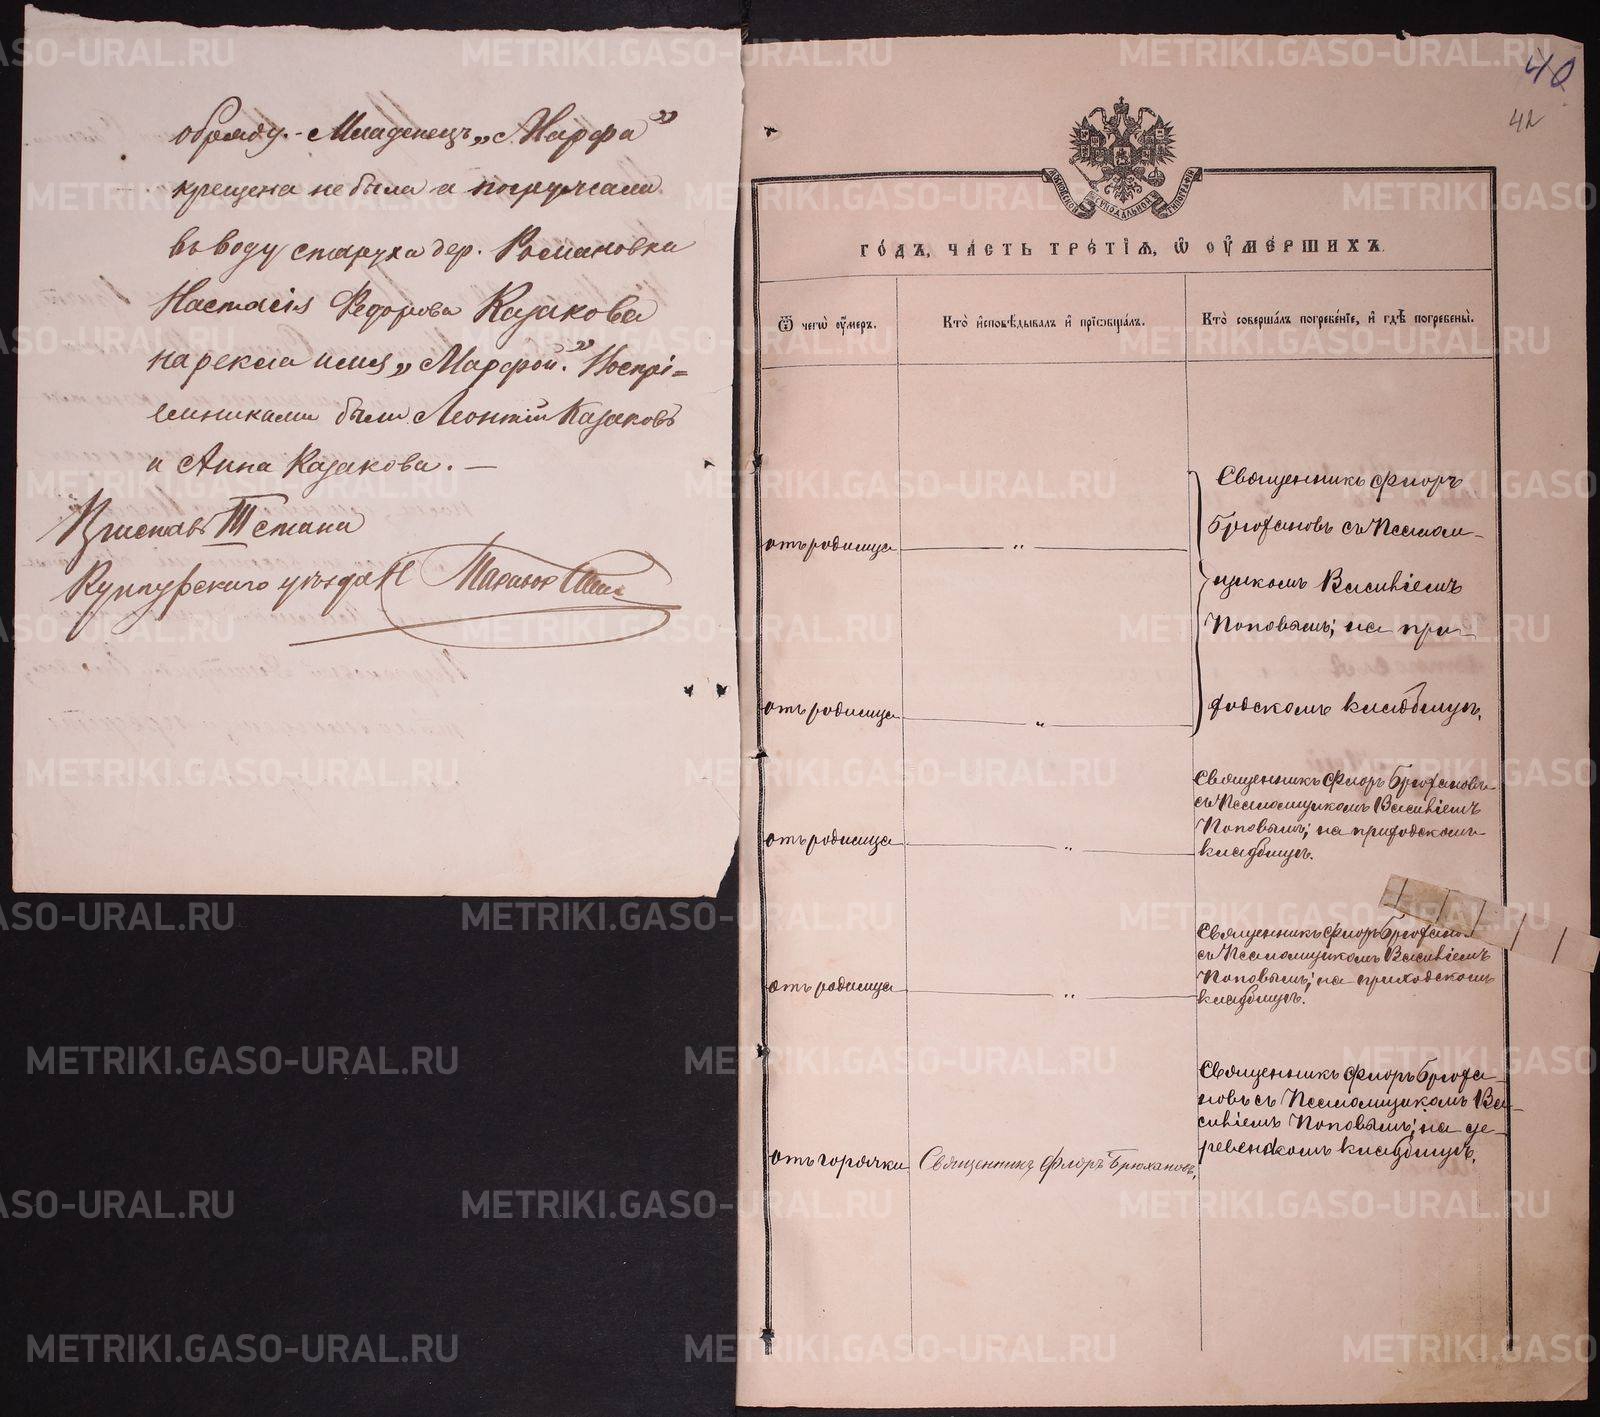 обряду. - Младенецъ „Марфа”
крещена не была а погружала
въ воду старуха дер. Романовка
Настасія Федорова Казакова
нарекла имя „Марфой.” Воспрі=
емниками были Леонтій Казаковъ
и Анна Казакова. —
Приставъ III стана
Кунгурскаго уѣзда
40
42
МОСКОВСКОЙ СѴНОДАЛЬНОЙ ТИПОГРАФІИ
ГОДЪ, ЧАСТЬ ТРЕТІѦ, Ѿ ОУМЕРШИХЪ.
Ѿ чегѡ оумеръ.
Кто исповѣдывалъ и пріобщалъ.
Кто совершалъ погребеніе, и гдѣ погребены.
отъ родимца
„
Священникъ Флоръ
Брюхановъ съ Псалом-
щикомъ Василіемъ
Поповымъ; на при-
ходскомъ кладбищѣ.
отъ родимца
„
отъ родимца
„
Священникъ Флоръ Брюхановъ
съ Псаломщикомъ Василіемъ
Поповымъ; на приходскомъ
кладбищѣ.
отъ родимца
„
Священникъ Флоръ Брюханов
съ Псаломщикомъ Василіемъ
Поповымъ; на приходскомъ
кладбищѣ.
отъ горячки
Священникъ Флоръ Брюхановъ.
Священникъ Флоръ Брюха-
новъ съ Псаломщикомъ Ва-
силіемъ Поповымъ; на де-
ревенскомъ кладбищѣ.
METRIKI.GASO-URAL.RU